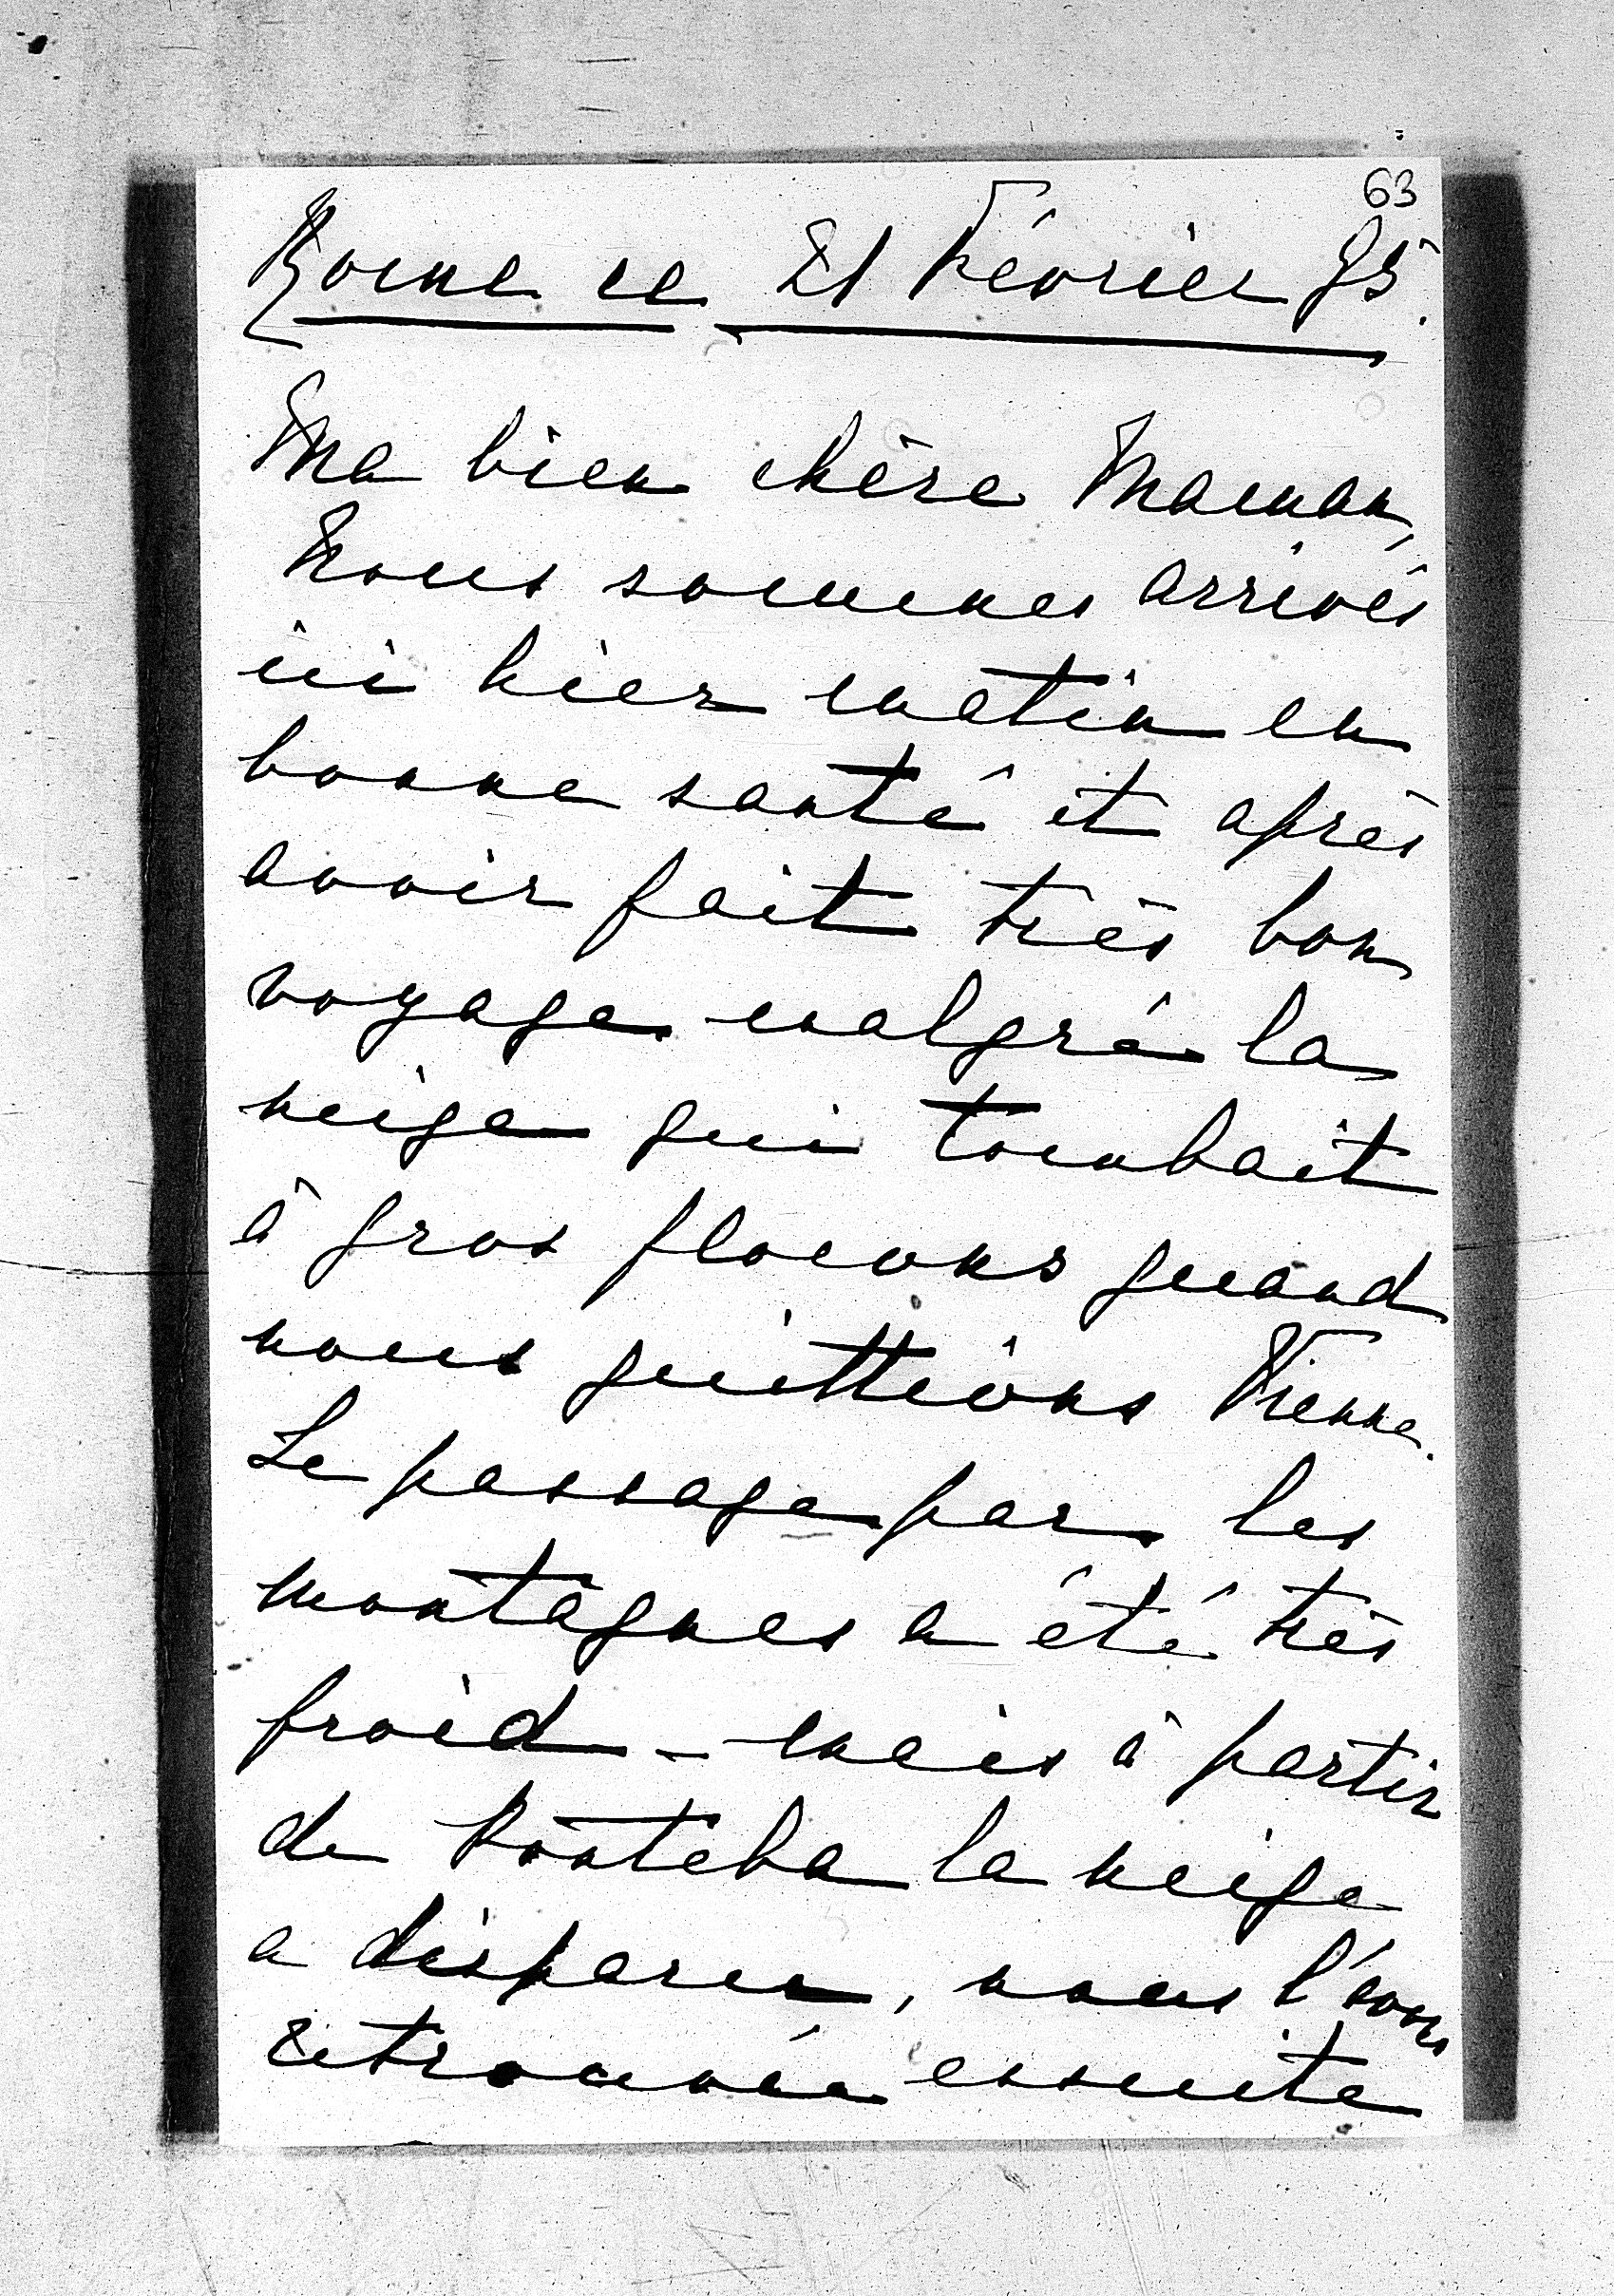 63
Rome ce 21 Février 95.
Ma bien chère Maman,
Nous sommes arrivés
ici hier matin en
bonne santé et après
avoir fait très bon
voyage malgré la
neige qui tombait
à gros flocons quand
nous quittions Vienne.
Le passage par les
montagnes a été très
froid – mais à partir
de Ponteba la neige
a disparu, nous l'avons
retrouvée ensuite